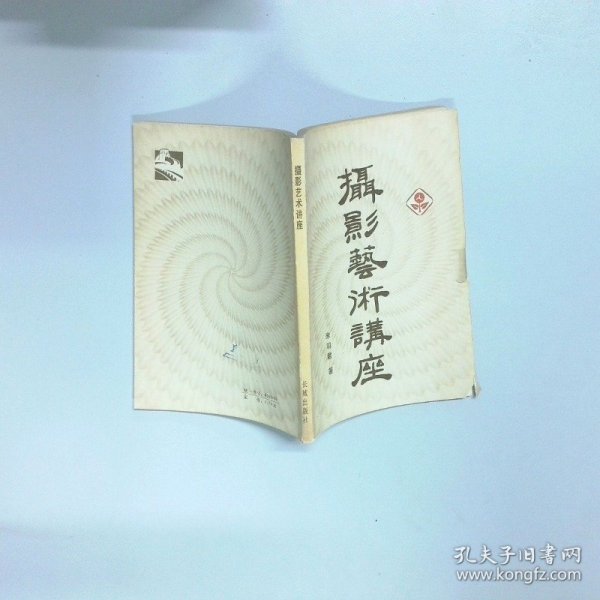 攝影藝術講座
著
摄影艺术讲座
长城出版社
孔夫子旧书网
www.kongfz.com